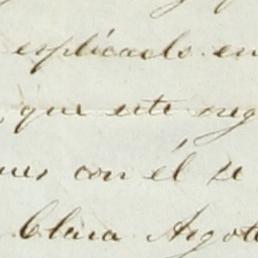 esplicado en
que este neg
nes con él se
Clara Argote